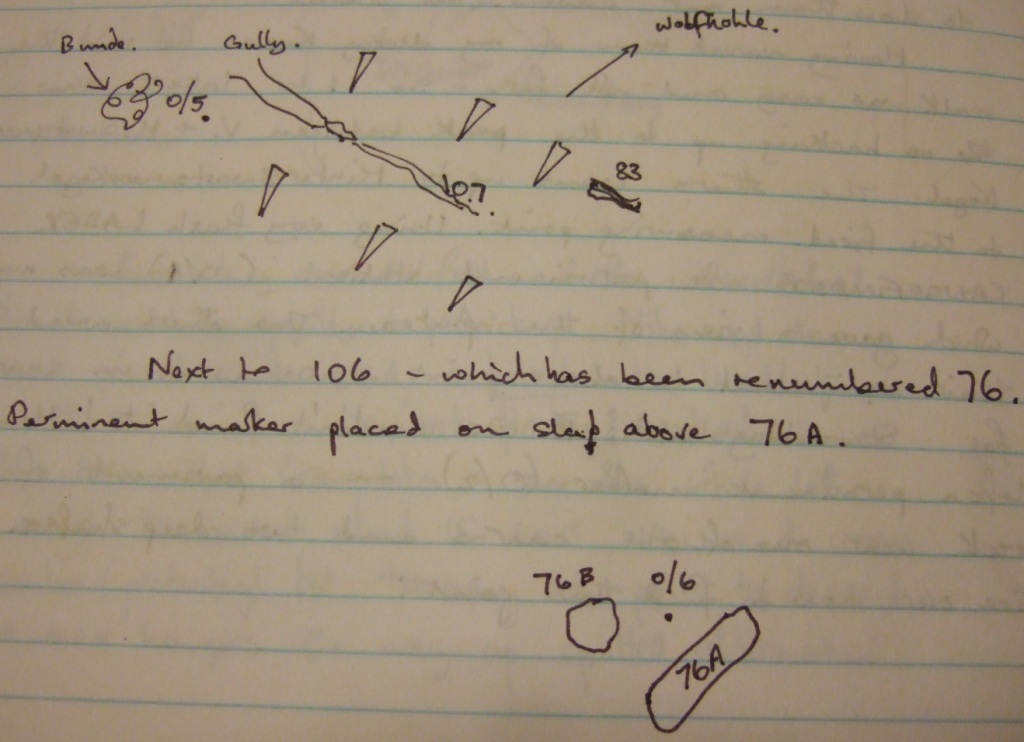 wolfhohle.
Bunde. Gully.
0/5.
83
0.7.
Next to 106 - which has been renumbered 76.
Perminent marker placed on slap above 76A.
76B 0/6
76A